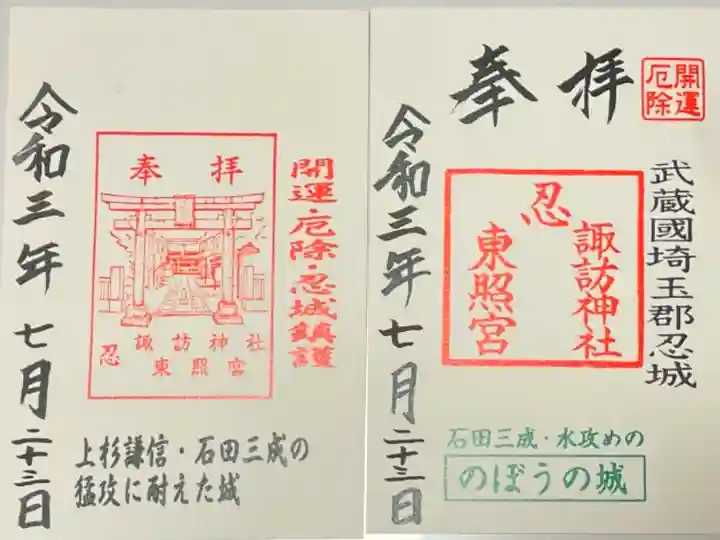 奉拝
開運・厄除・忍城鎮護
忍 諏訪神社
東照宮
令和三年七月二十三日
上杉謙信・石田三成の
猛攻に耐えた城
開運
厄除
奉拝
武蔵國埼玉郡忍城
忍
諏訪神社
東照宮
令和三年七月二十三日
石田三成・水攻めの
のぼうの城